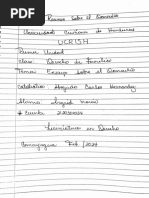 Resumen Sobre el Domicilio
Universidad Cristiana de Honduras
UCRISH
Primer Unidad
Clase: Derecho de Familia
Tema: Ensayo Sobre el Domicilio
Catedrático: Alejandro Carlos Hernandez
Alumna:
# Cuenta
Licenciatura en Derecho
Comayagua Feb. 2024